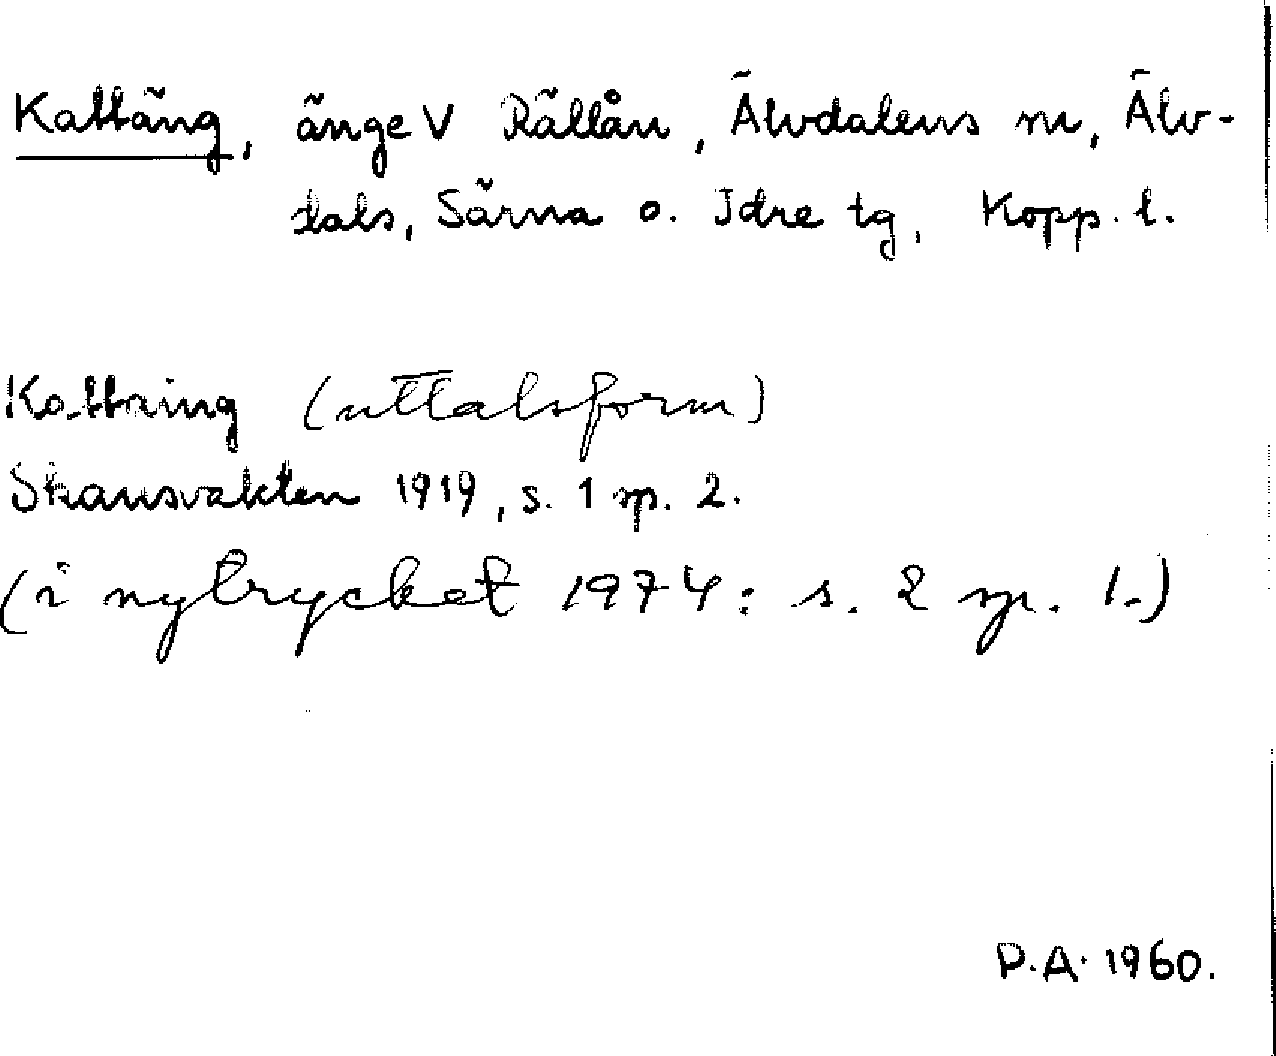 Kattäng, änge V Rällån, Älvdalens sn, Älv-
dals, Särna o. Idre tg, Kopp. l.
Kattaing (uttalsform)
Skansvakten 1919, s. 1 sp. 2.
(i nytrycket 1974: s. 2 sp. 1.)
P.A. 1960.